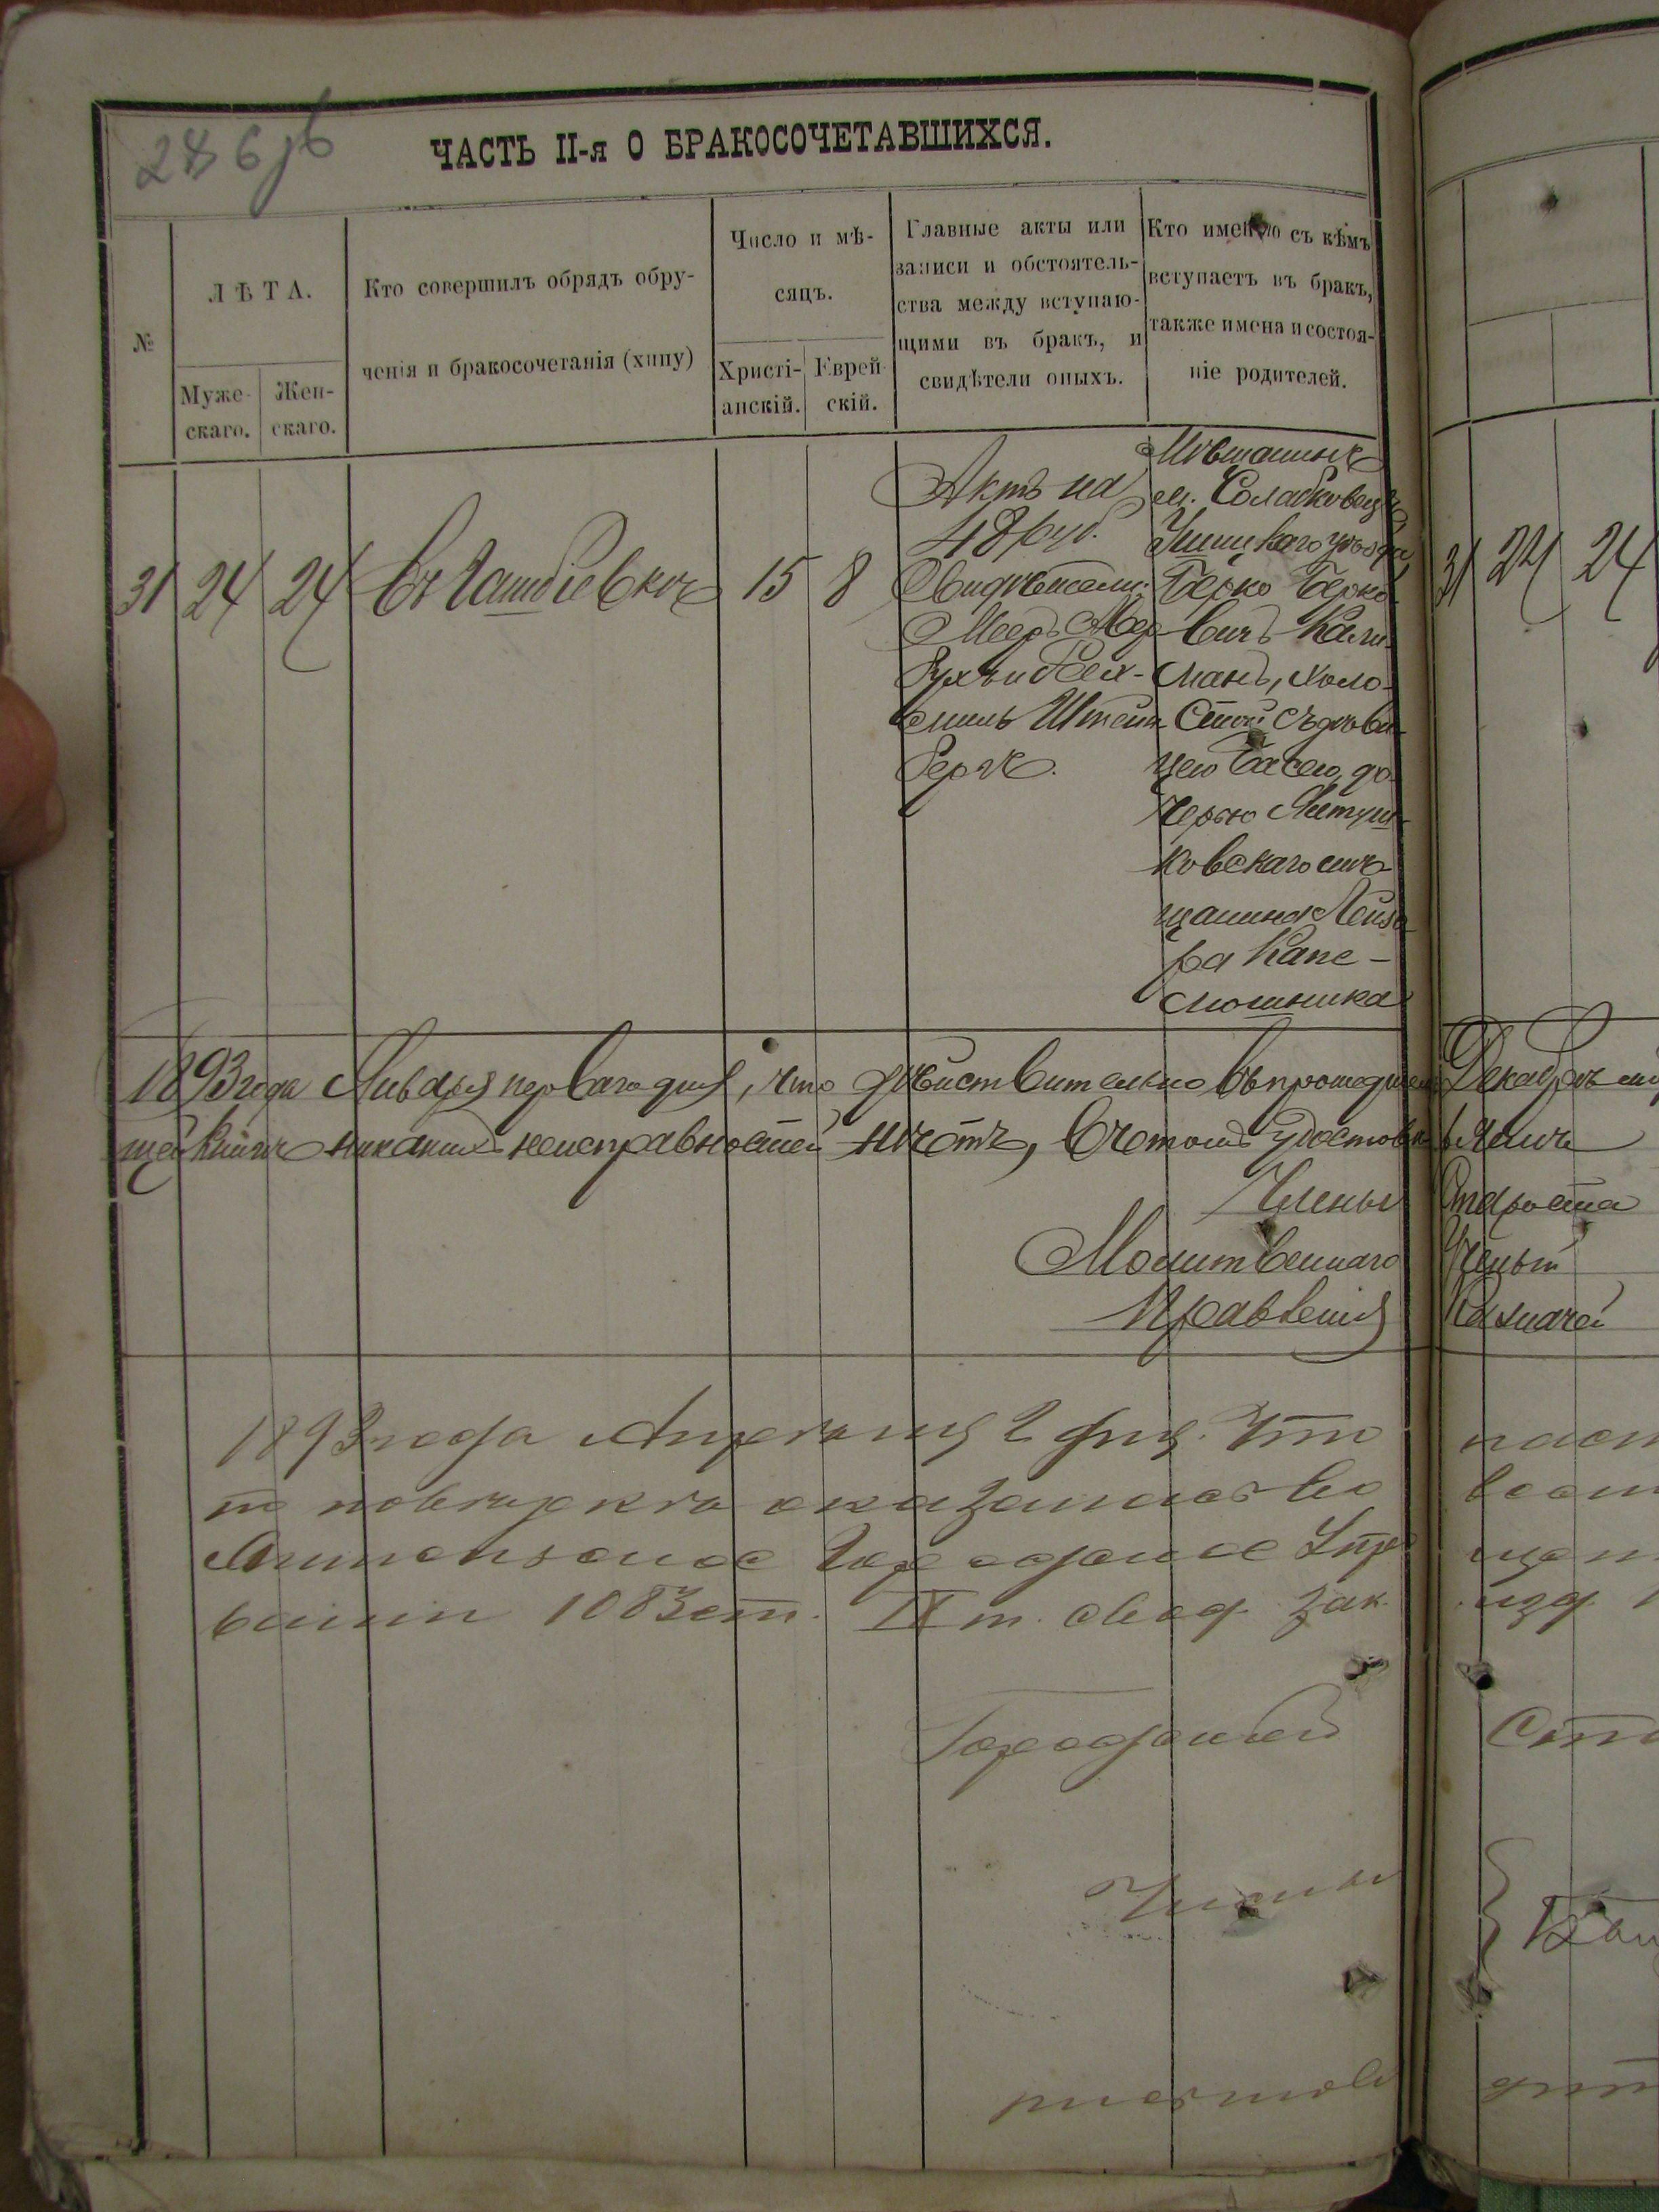 ЧАСТЬ II-я О БРАКОСОЧЕТАВШИХСЯ.
№
ЛѢТА.
Муже-
скаго.
Жен-
скаго.
Кто совершилъ обрядъ обру-
ченія и бракосочетанія (хипу)
Число и мѣ-
сяцъ.
Христі-
анскій.
Еврей-
скій.
Главные акты или
записи и обстоятель-
ства между вступаю-
щими въ бракъ, и
свидѣтели оныхъ.
Кто именно съ кѣмъ
вступаетъ въ бракъ,
также имена и состоя-
ніе родителей.
31
24
24
15
8
Актъ на
48 руб.
Свидѣтели:
Мееръ
Штейн
берг.
Мѣщанинъ
м. Солобковецъ
Ушицкаго уѣзда
Берко Берко-
вичъ Кали-
манъ, холо-
стой съ дѣви-
цею Басею, до-
черью Ялтуш-
ковскаго мѣ-
щанина Лейзе-
ра Капе-
люшника
1893 года Января перваго дня, что дѣйствительно въ прошедшемъ
щей книгѣ никакихъ неисправностей нѣтъ, въ томъ удостовѣ
Члены
Молитвеннаго
Правленія
1893 года Апрѣля 2 дня. Что
по повѣркѣ оказалась во
Городское Упр
1083 ст. IX т. свод. зак.
Городской
Члены
31 24 24
Декабрѣ
ряемъ
Староста
Ученый
Казначей